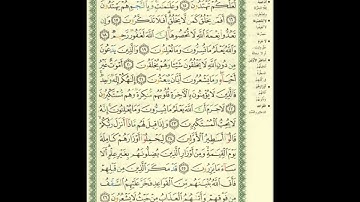 لَعَلَّكُمْ تَهْتَدُونَ ۝١٥ وَعَلَٰمَٰتٍ وَبِٱلنَّجْمِ هُمْ يَهْتَدُونَ ۝١٦
أَفَمَن يَخْلُقُ كَمَن لَّا يَخْلُقُ أَفَلَا تَذَكَّرُونَ ۝١٧ وَإِن
تَعُدُّوا۟ نِعْمَةَ ٱللَّهِ لَا تُحْصُوهَآ إِنَّ ٱللَّهَ لَغَفُورٌ رَّحِيمٌ ۝١٨
وَٱللَّهُ يَعْلَمُ مَا تُسِرُّونَ وَمَا تُعْلِنُونَ ۝١٩ وَٱلَّذِينَ يَدْعُونَ
مِن دُونِ ٱللَّهِ لَا يَخْلُقُونَ شَيْـًٔا وَهُمْ يُخْلَقُونَ ۝٢٠ أَمْوَٰتٌ غَيْرُ
أَحْيَآءٍ وَمَا يَشْعُرُونَ أَيَّانَ يُبْعَثُونَ ۝٢١ إِلَٰهُكُمْ إِلَٰهٌ وَٰحِدٌ
فَٱلَّذِينَ لَا يُؤْمِنُونَ بِٱلْـَٔاخِرَةِ قُلُوبُهُم مُّنكِرَةٌ وَهُم مُّسْتَكْبِرُونَ
۝٢٢ لَا جَرَمَ أَنَّ ٱللَّهَ يَعْلَمُ مَا يُسِرُّونَ وَمَا يُعْلِنُونَ إِنَّهُۥ
لَا يُحِبُّ ٱلْمُسْتَكْبِرِينَ ۝٢٣ وَإِذَا قِيلَ لَهُم مَّاذَآ أَنزَلَ رَبُّكُمْ
قَالُوٓا۟ أَسَٰطِيرُ ٱلْأَوَّلِينَ ۝٢٤ لِيَحْمِلُوٓا۟ أَوْزَارَهُمْ كَامِلَةً
يَوْمَ ٱلْقِيَٰمَةِ وَمِنْ أَوْزَارِ ٱلَّذِينَ يُضِلُّونَهُم بِغَيْرِ عِلْمٍ أَلَا
سَآءَ مَا يَزِرُونَ ۝٢٥ قَدْ مَكَرَ ٱلَّذِينَ مِن قَبْلِهِمْ
فَأَتَى ٱللَّهُ بُنْيَٰنَهُم مِّنَ ٱلْقَوَاعِدِ فَخَرَّ عَلَيْهِمُ ٱلسَّقْفُ
مِن فَوْقِهِمْ وَأَتَىٰهُمُ ٱلْعَذَابُ مِنْ حَيْثُ لَا يَشْعُرُونَ ۝٢٦